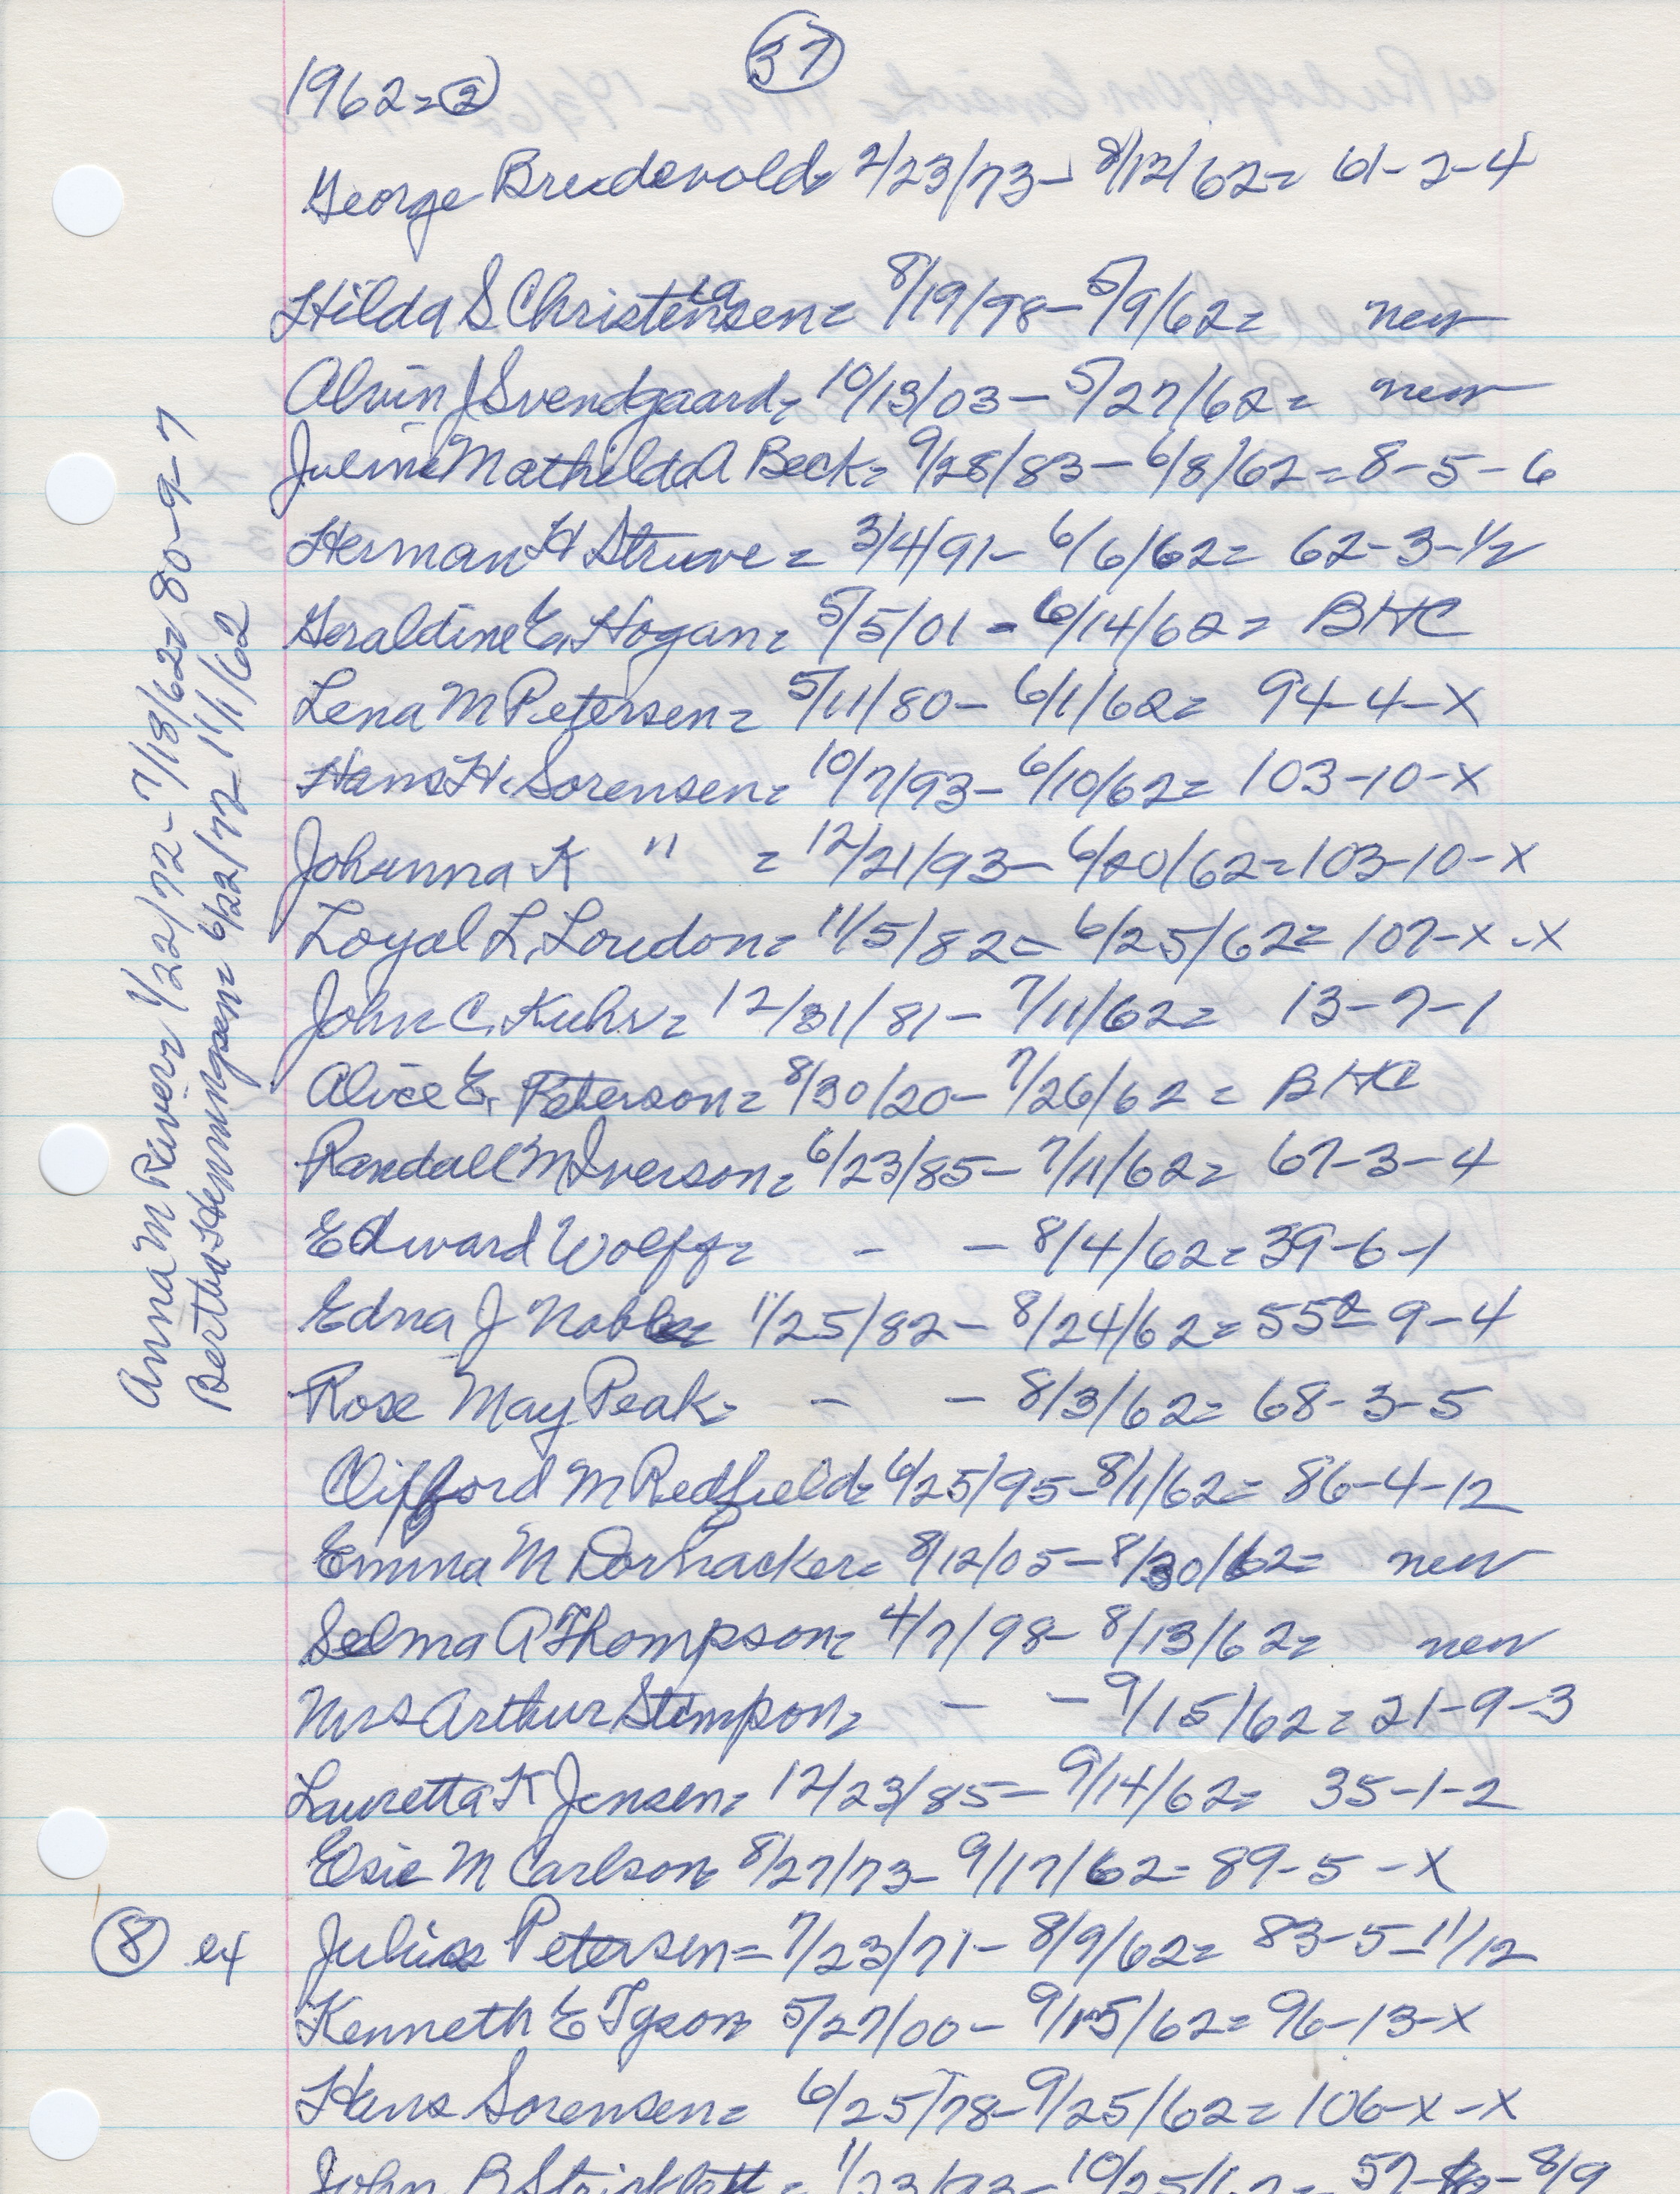 37
1962=2
George Bredevold= 2/23/73- 8/12/62= 61-2-4
Hilda S Christensen= 8/19/98-5/9/62= new
Alvin J Svendgaard= 10/13/03-5/27/62= new
Juline Mathilda A Beck= 9/28/83-6/8/62=8-5-6
Herman H Struve= 3/4/91-6/6/62= 62-3-1/2
Geraldine E. Hogan= 5/5/01-6/14/62= BHC
Lena M Petersen= 5/11/80-6/1/62= 94-4-X
Hans H. Sorensen= 10/7/93-6/10/62= 103-10-X
Johanna K " = 12/21/93-6/20/62=103-10-X
Loyal L. Loudon= 11/5/82-6/25/62=107-X-X
John C. Kuhr= 12/31/81-7/11/62= 13-7-1
Alice E. Peterson= 8/30/20-7/26/62= BHC
Randall M Iverson= 6/23/85-7/11/62= 67-3-4
Edward Wolff= - - 8/4/62=39-6-1
Edna J Noble= 11/25/82-8/24/62=552-9-4
Rose May Peak= - - 8/3/62= 68-3-5
Clifford M Redfield= 6/25/95-8/1/62= 86-4-12
Emma M Dorhacker= 8/12/05-8/30/62= new
Selma A Thompson= 4/7/98-8/13/62= new
Mrs Arthur Stimpson= - - 9/15/62=21-9-3
Lauretta K Jensen= 12/23/85-9/14/62= 35-1-2
Elsie M Carlson= 8/27/73-9/17/62=89-5-X
8 ex Julius Petersen= 7/23/71-8/9/62= 83-5-11/12
Kenneth E Tyson= 5/27/00-9/15/62=96-13-X
Hans Sorensen= 6/25/78-9/25/62=106-X-X
John B Stricklett= 11/23/93-10/25/62= 57- -8/9
Anna M River= 1/22/72-7/18/62= 80-9-7
Bertha Henningsen= 6/22/72-11/1/62